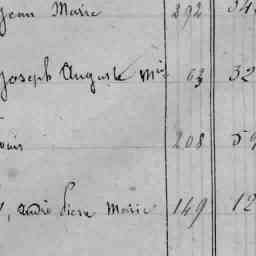 Jean Marie 292
Joseph Auguste Mie 63 32
208
André Pierre Marie 149 12